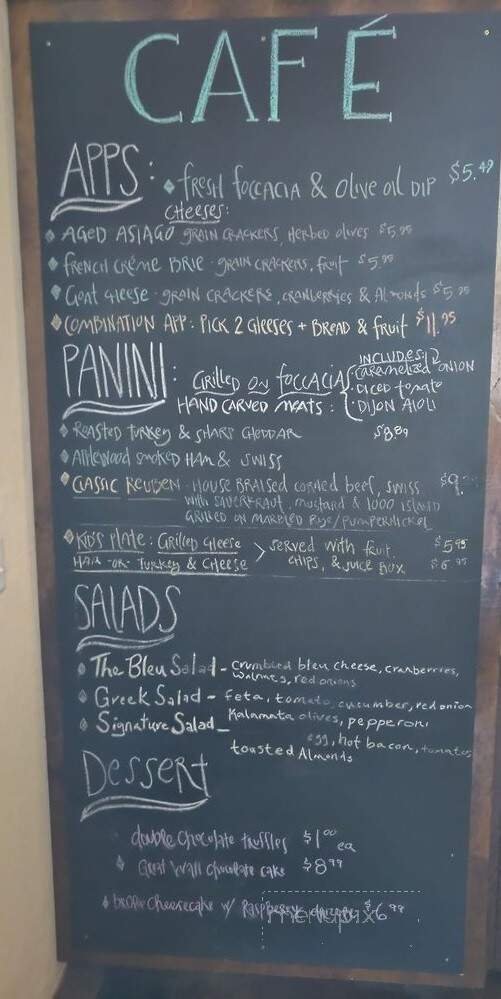 CAFÉ
APPS: • fresh foccacia & olive oil dip $5.49
CHEESES:
• AGED ASIAGO GRAIN CRACKERS, Herbed olives $5.95
• french crème Brie - grain crackers, fruit $5.95
• Goat cheese - GRAIN CRACKERS, CRANBERRIES & Almonds $5.95
• COMBINATION APP: PICK 2 CHEESES + BREAD & fruit $11.95
PANINI: Grilled on foccacia
HAND CARVED MEATS:
INCLUDES:
caramelized ONION
• DICED tomato
• DIJON AIOLI
• Roasted turkey & sharp cheddar $8.89
• Applewood smoked HAM & SWISS
• CLASSIC REUBEN - House Braised corned beef, SWISS $9.
with sauerkraut, mustard & 1000 island
GRILLED ON MARBLED Rye/pumpernickel
• KID'S Plate: Grilled cheese $5.95
HAM -OR- TURKEY & CHEESE $6.95
served with fruit,
CHIPS, & JUICE BOX
SALADS
• The Bleu Salad - crumbled bleu cheese, cranberries,
walnuts, red onions
• Greek Salad - feta, tomato, cucumber, red onion
Kalamata olives, pepperoni
• Signature Salad - egg, hot bacon, tomatoes
toasted Almonds
Dessert
double chocolate truffles $1.00 ea
• Great Wall chocolate cake $8.99
• cheesecake w/ Raspberry $6.99
menupix